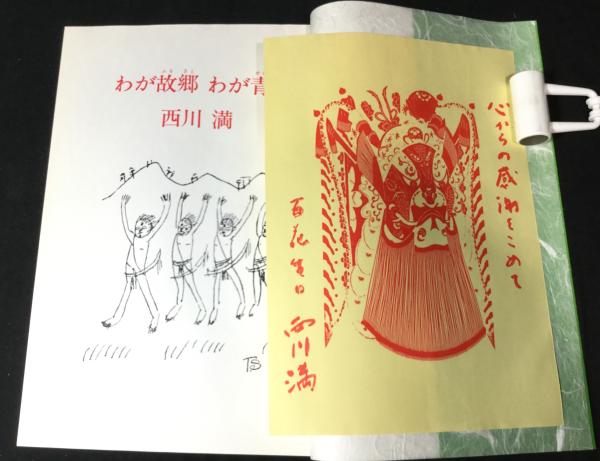 わが故郷 わが青
西川 満
TS
心からの感謝をこめて
百花生日 西川満